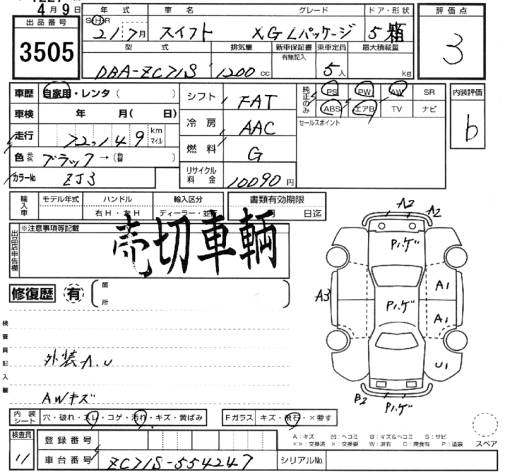 4月9日
出品番号 年式 車名 グレード ドア・形状 評価点
3505
SHR 21/7月 スイフト XG Lパッケージ 5 箱
3
型式 排気量 新車保証書 有無記入 乗車定員 最大積載量
DBA-ZC71S 1200 cc 5人 kg
車歴 自家用・レンタ( )
シフト FAT
純正のみ PS PW AW SR
ABS エアB TV ナビ
内装評価
b
車検 年 月( 日)
冷房 AAC
セールスポイント
走行 72,149 km マイル
燃料 G
色 ブラック→(
カラーNo ZJ3
リサイクル料金 10090円
輸入車 モデル年式 ハンドル 輸入区分 書類有効期限
右H・左H ディーラー・並行 月 日迄
出品店申告欄 ※注意事項等記載
売切車輌
修復歴 有 箇所
検査員記入欄
外装A.U
AWキズ
A2 A2
Pハゲ
A3 Pハゲ A1
A1
U1
B2 Pハゲ
内装シート 穴・破れ・スレ・コゲ・汚れ・キズ・黄ばみ Fガラス キズ・飛石・×要す
スペア
検査員 11
登録番号
車台番号 ZC71S-554247 シリアルNo.
A:キズ B:キズ&ヘコミ S:サビ